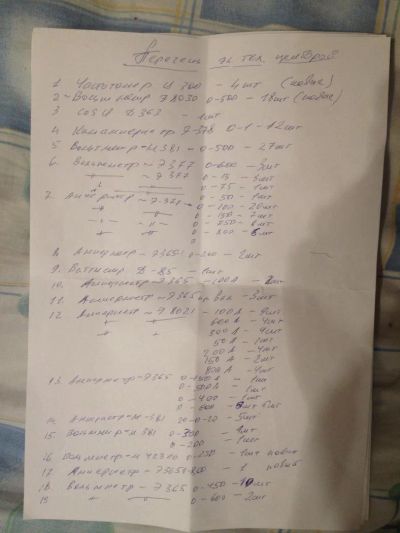 Перечень эл. тех. приборов
1 Частотомер Ц 300 - 4 шт (новые)
2 ~ Вольтметр Э 8030 0-500 - 18 шт (новые)
3 cos φ Д 362 - 1 шт
4 Килоамперметр Э-378 0-1 - 12 шт
5 Вольтметр - М 381 - 0-500 - 27 шт
6. Вольтметр ~ Э 377 0-600 - 3 шт
~ Э 377 0-15 - 3 шт
0-75 - 1 шт
7. Амперметр ~ Э 378 0-50 - 1 шт
0-100 - 20 шт
0-150 - 7 шт
0-250 - 6 шт
0-300 6 шт
8. Амперметр ~ Э 365-1 0-200 - 2 шт
9. Ваттметр Д-85 - 1 шт
10. Амперметр ~ Э 365 - 100 А - 2 шт
11. Амперметр ~ Э 365 - 3 шт
12 Амперметр ~ Э 8021 - 100 А - 9 шт
600 А - 4 шт
300 А - 4 шт
50 А - 1 шт
200 А - 4 шт
150 А - 2 шт
800 А - 4 шт
13. Амперметр - Э 365 0-150 А - 1 шт
0-300 А - 1 шт
0-400 - 1 шт
0-600
14. Амперметр - М 381 20-0-20 - 5 шт
15. Вольтметр - М 381 0-300 - 1 шт
0-200 - 1 шт
16 Вольтметр - М 42300 0-250 - 1 шт новый
17. Амперметр - Э 365 0-800 - 1 новый
18. Вольтметр - Э 365 0-450 - 10 шт
19 0-600 - 2 шт